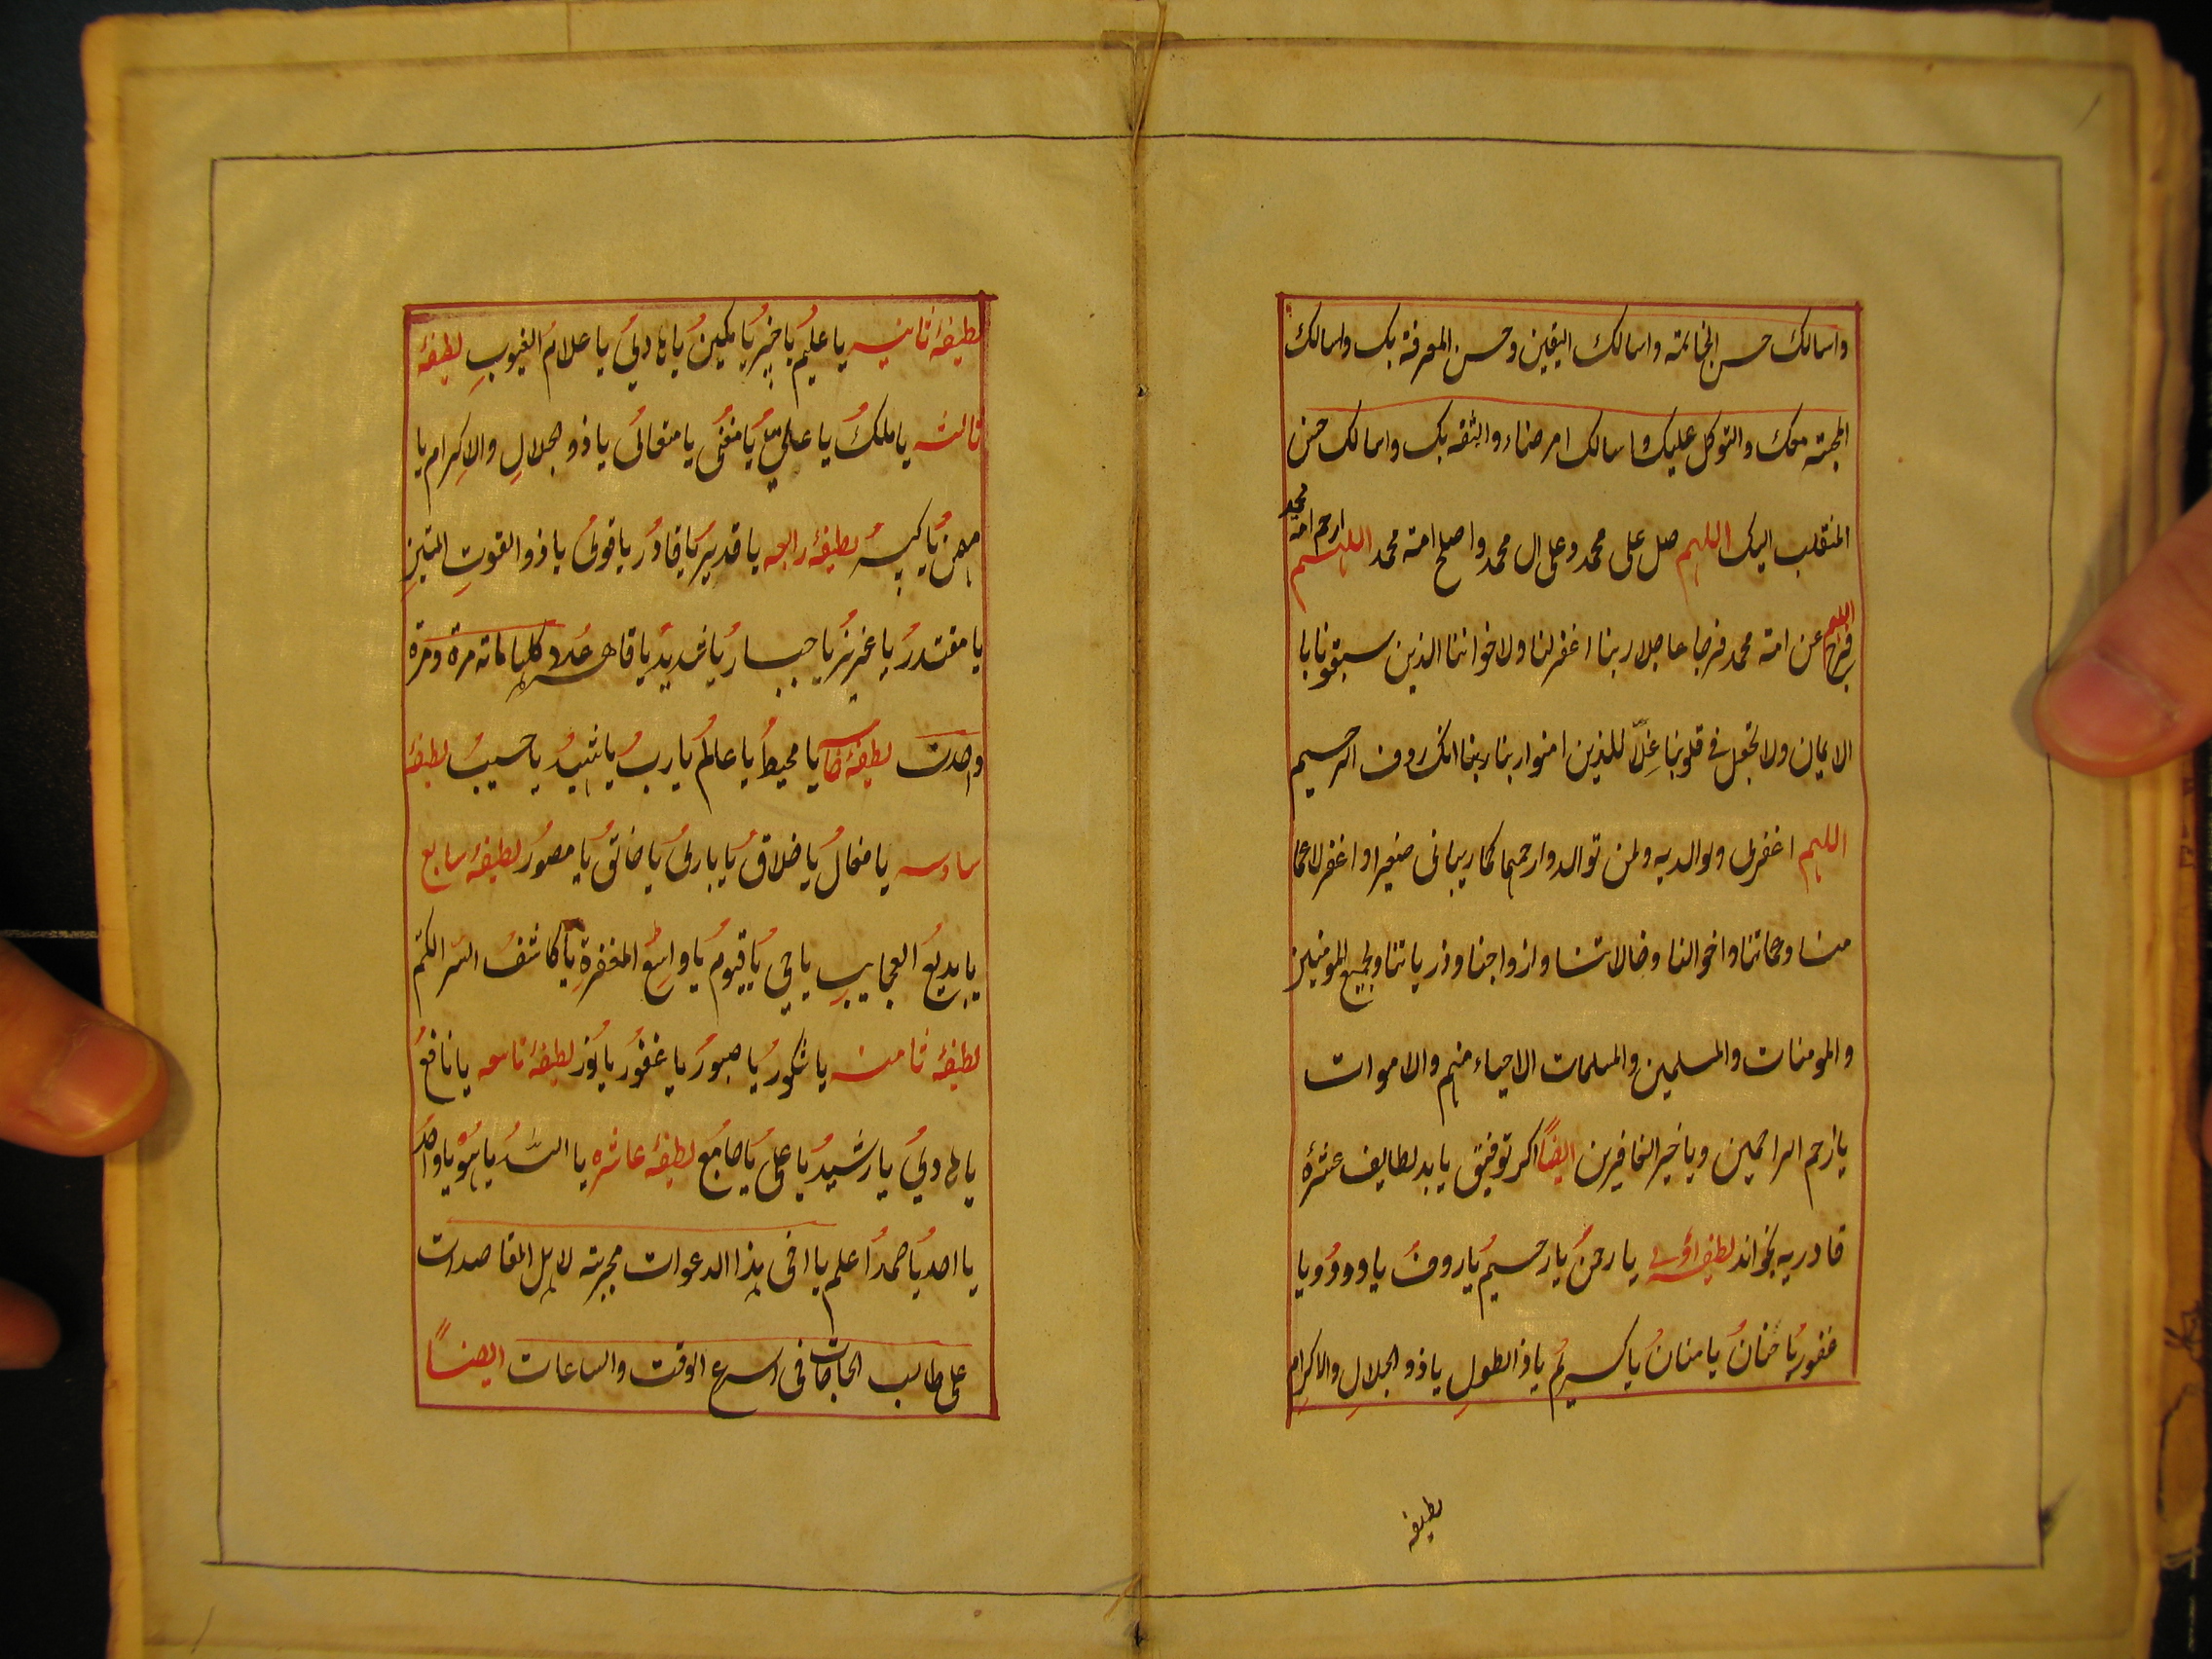 واسالك حسن الخاتمته واسالك اليقين وحسن المعرفة بك واسالك
المحبته معك والتوكل عليك واسالك امر ضاء والثقه بك واسالك حسن
المنقلب اليك اللهم صل على محمد وعلى ال محمد واصلح امته محمد اللهم ارحم امته محمد
اللهم فرج عن امته محمد فرجا عاجلا ربنا اغفرلنا ولاخواننا الذين سبقونا با
الايمان ولا تجعل فى قلوبنا غِلّا للذين امنوا ربنا ربنا انك روف الرحيم
اللهم اغفرلى ولوالديه ولمن توالد وارحمهما كما ربيانى صغيرا واغفر لاعما
منا وعماتنا واخوالنا وخالاتنا وازواجنا وذرياتنا ولجميع المومنين
والمومنات والمسلمين والمسلمات الاحياء منهم والاموات
يا ارحم الراحمين ويا خير الغافرين ايضاً اكر توفيق يابد لطايف عشرۀ
قادريه بخواند لطيفه اولى يا رحمنُ يا رحيمُ يا روفُ يا ودودُ ويا
غفورُ يا حنانُ يا منانُ يا كريمُ يا ذا الطولِ يا ذو الجلالِ والاكرامِ
لطيفه
لطيفۀ ثانيه يا عليمُ يا خبيرُ يا مكينُ يا هادىُ يا علامُ الغيوبِ لطيفۀ
ثالثه يا ملكُ يا علىُ يا مغنىُ يا متعالىُ يا ذو الجلالِ والاِكرام يا
مهيمنُ يا كبيرُ لطيفۀ رابعه يا قديرُ يا قادرُ يا قوىُ يا ذو القوتِ المتينِ
يا مقتدرُ يا عزيزُ يا جبارُ يا فريدُ يا قاهرُ عدد كلها مائه مرة ومرة
واحدت لطيفۀ خامسه يا محيطُ يا عالمُ يا ربُ يا شهيدُ يا حسيبُ لطيفۀ
سادسه يا فعالُ يا خلاقُ يا بارىُ يا خالقُ يا مصورُ لطيفۀ سابع
يا بديعُ العجايبِ يا حىُ يا قيومُ يا واسعُ المغفرةِ يا كاشفُ السر الكتم
لطيفۀ ثامنه يا شكورُ يا صبورُ يا غفورُ يا نورُ لطيفۀ تاسعه يا نافعُ
يا هادىُ يا رشيدُ يا علىُ يا جامعُ لطيفۀ عاشره يا اللهُ يا هُو يا واحدُ
يا احدُ يا صمدُ اعلم يا اخى هذا الدعوات مجربته لاهل المقاصدات
على طالب الحاجات فى اسرع الوقت والساعات ايضاً